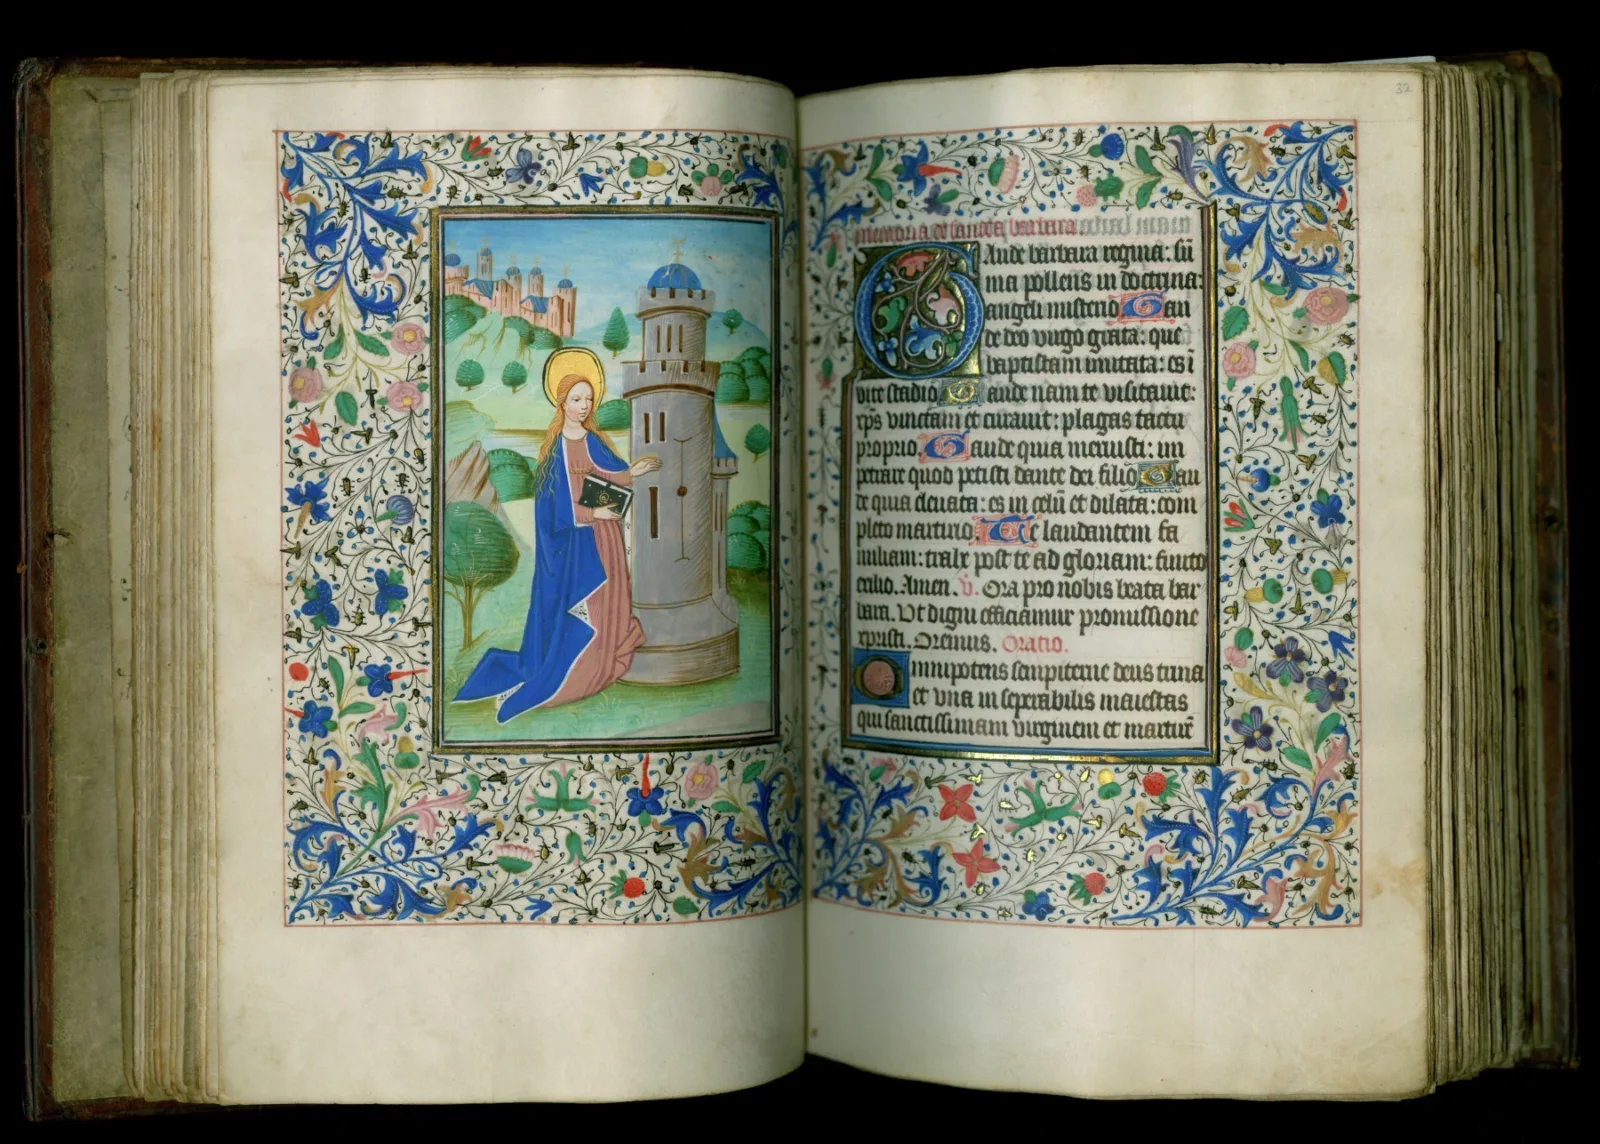 32
memoria de sancta barbara
Gaude barbara regina: sū
ma pollens in doctrina:
angeli misterio Gau
de deo virgo grata: que
baptistam imitata: es ī
vite stadio Gaude nam te visitavit:
xp̄s vinctam et curavit: plagas tactu
proprio. Gaude quia meruisti: im
petrare quod petisti dante dei filio Gau
de quia elevata: es in celū et dilata: com
pleto martirio. Te laudantem fa
miliam: trahe post te ad gloriam: finito
exilio. Amen. v. Ora pro nobis beata bar
bara. Vt digni efficiamur promissione
xpristi. Oremus. Oratio.
Omnipotens sempiterne deus trina
et vna in seperabilis maiestas
qui sanctissimam virginem et martirē